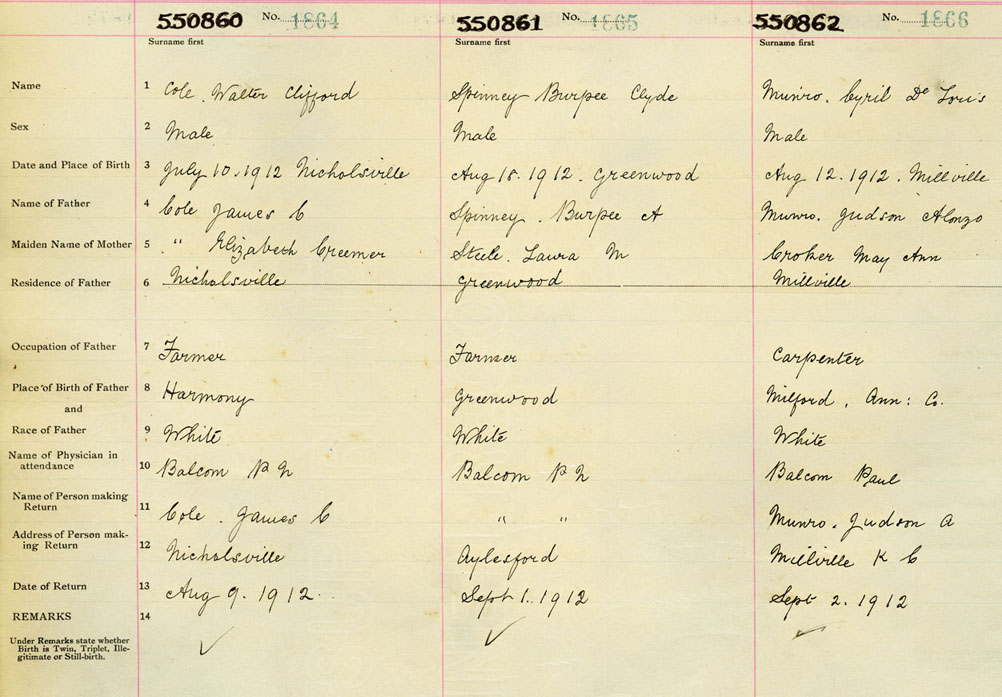 550860 No. 1864 550861 No. 1865 550862 No. 1866
Surname first Surname first Surname first
Name 1 Cole, Walter Clifford Spinney Burpee Clyde Munro, Cyril De Loris
Sex 2 Male Male Male
Date and Place of Birth 3 July 10, 1912 Nicholsville Aug 18. 1912. Greenwood Aug 12. 1912. Millville
Name of Father 4 Cole James C Spinney. Burpee A Munro. Judson Alonzo
Maiden Name of Mother 5 " Elizabeth Creemer Steele. Laura M Croker May Ann
Residence of Father 6 Nicholsville Greenwood Millville
Occupation of Father 7 Farmer Farmer Carpenter
Place of Birth of Father 8 Harmony Greenwood Milford, Ann: Co.
and
Race of Father 9 White White White
Name of Physician in
attendance 10 Balcom P N Balcom P N Balcom Paul
Name of Person making
Return 11 Cole. James C " " Munro. Judson A
Address of Person mak-
ing Return 12 Nicholsville Aylesford Millville K C
Date of Return 13 Aug 9. 1912. Sept 1. 1912 Sept 2. 1912
REMARKS 14
Under Remarks state whether
Birth is Twin, Triplet, Ille-
gitimate or Still-birth. ✓ ✓ ✓